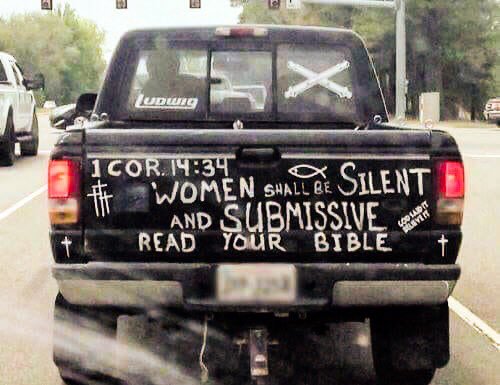 LUDWIG
1 COR. 14:34
WOMEN SHALL BE SILENT
AND SUBMISSIVE
READ YOUR BIBLE
GOD SAID IT
BELIEVE IT